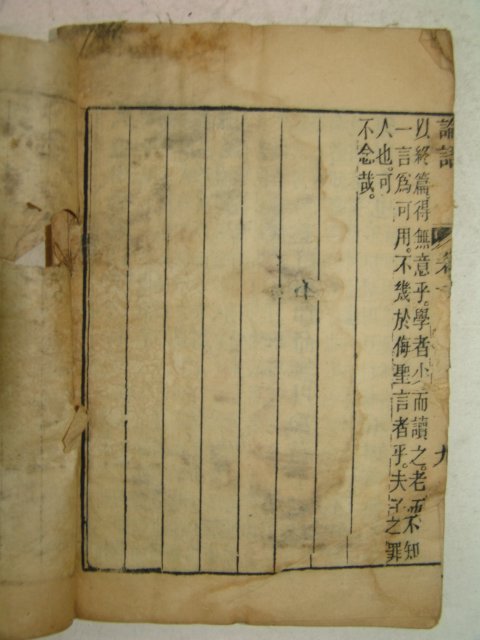 論語 卷十 九
以終篇得無意乎。學者少而讀之。老而不知
一言爲可用。不幾於侮聖言者乎。夫子之罪
人也。可
不念哉。